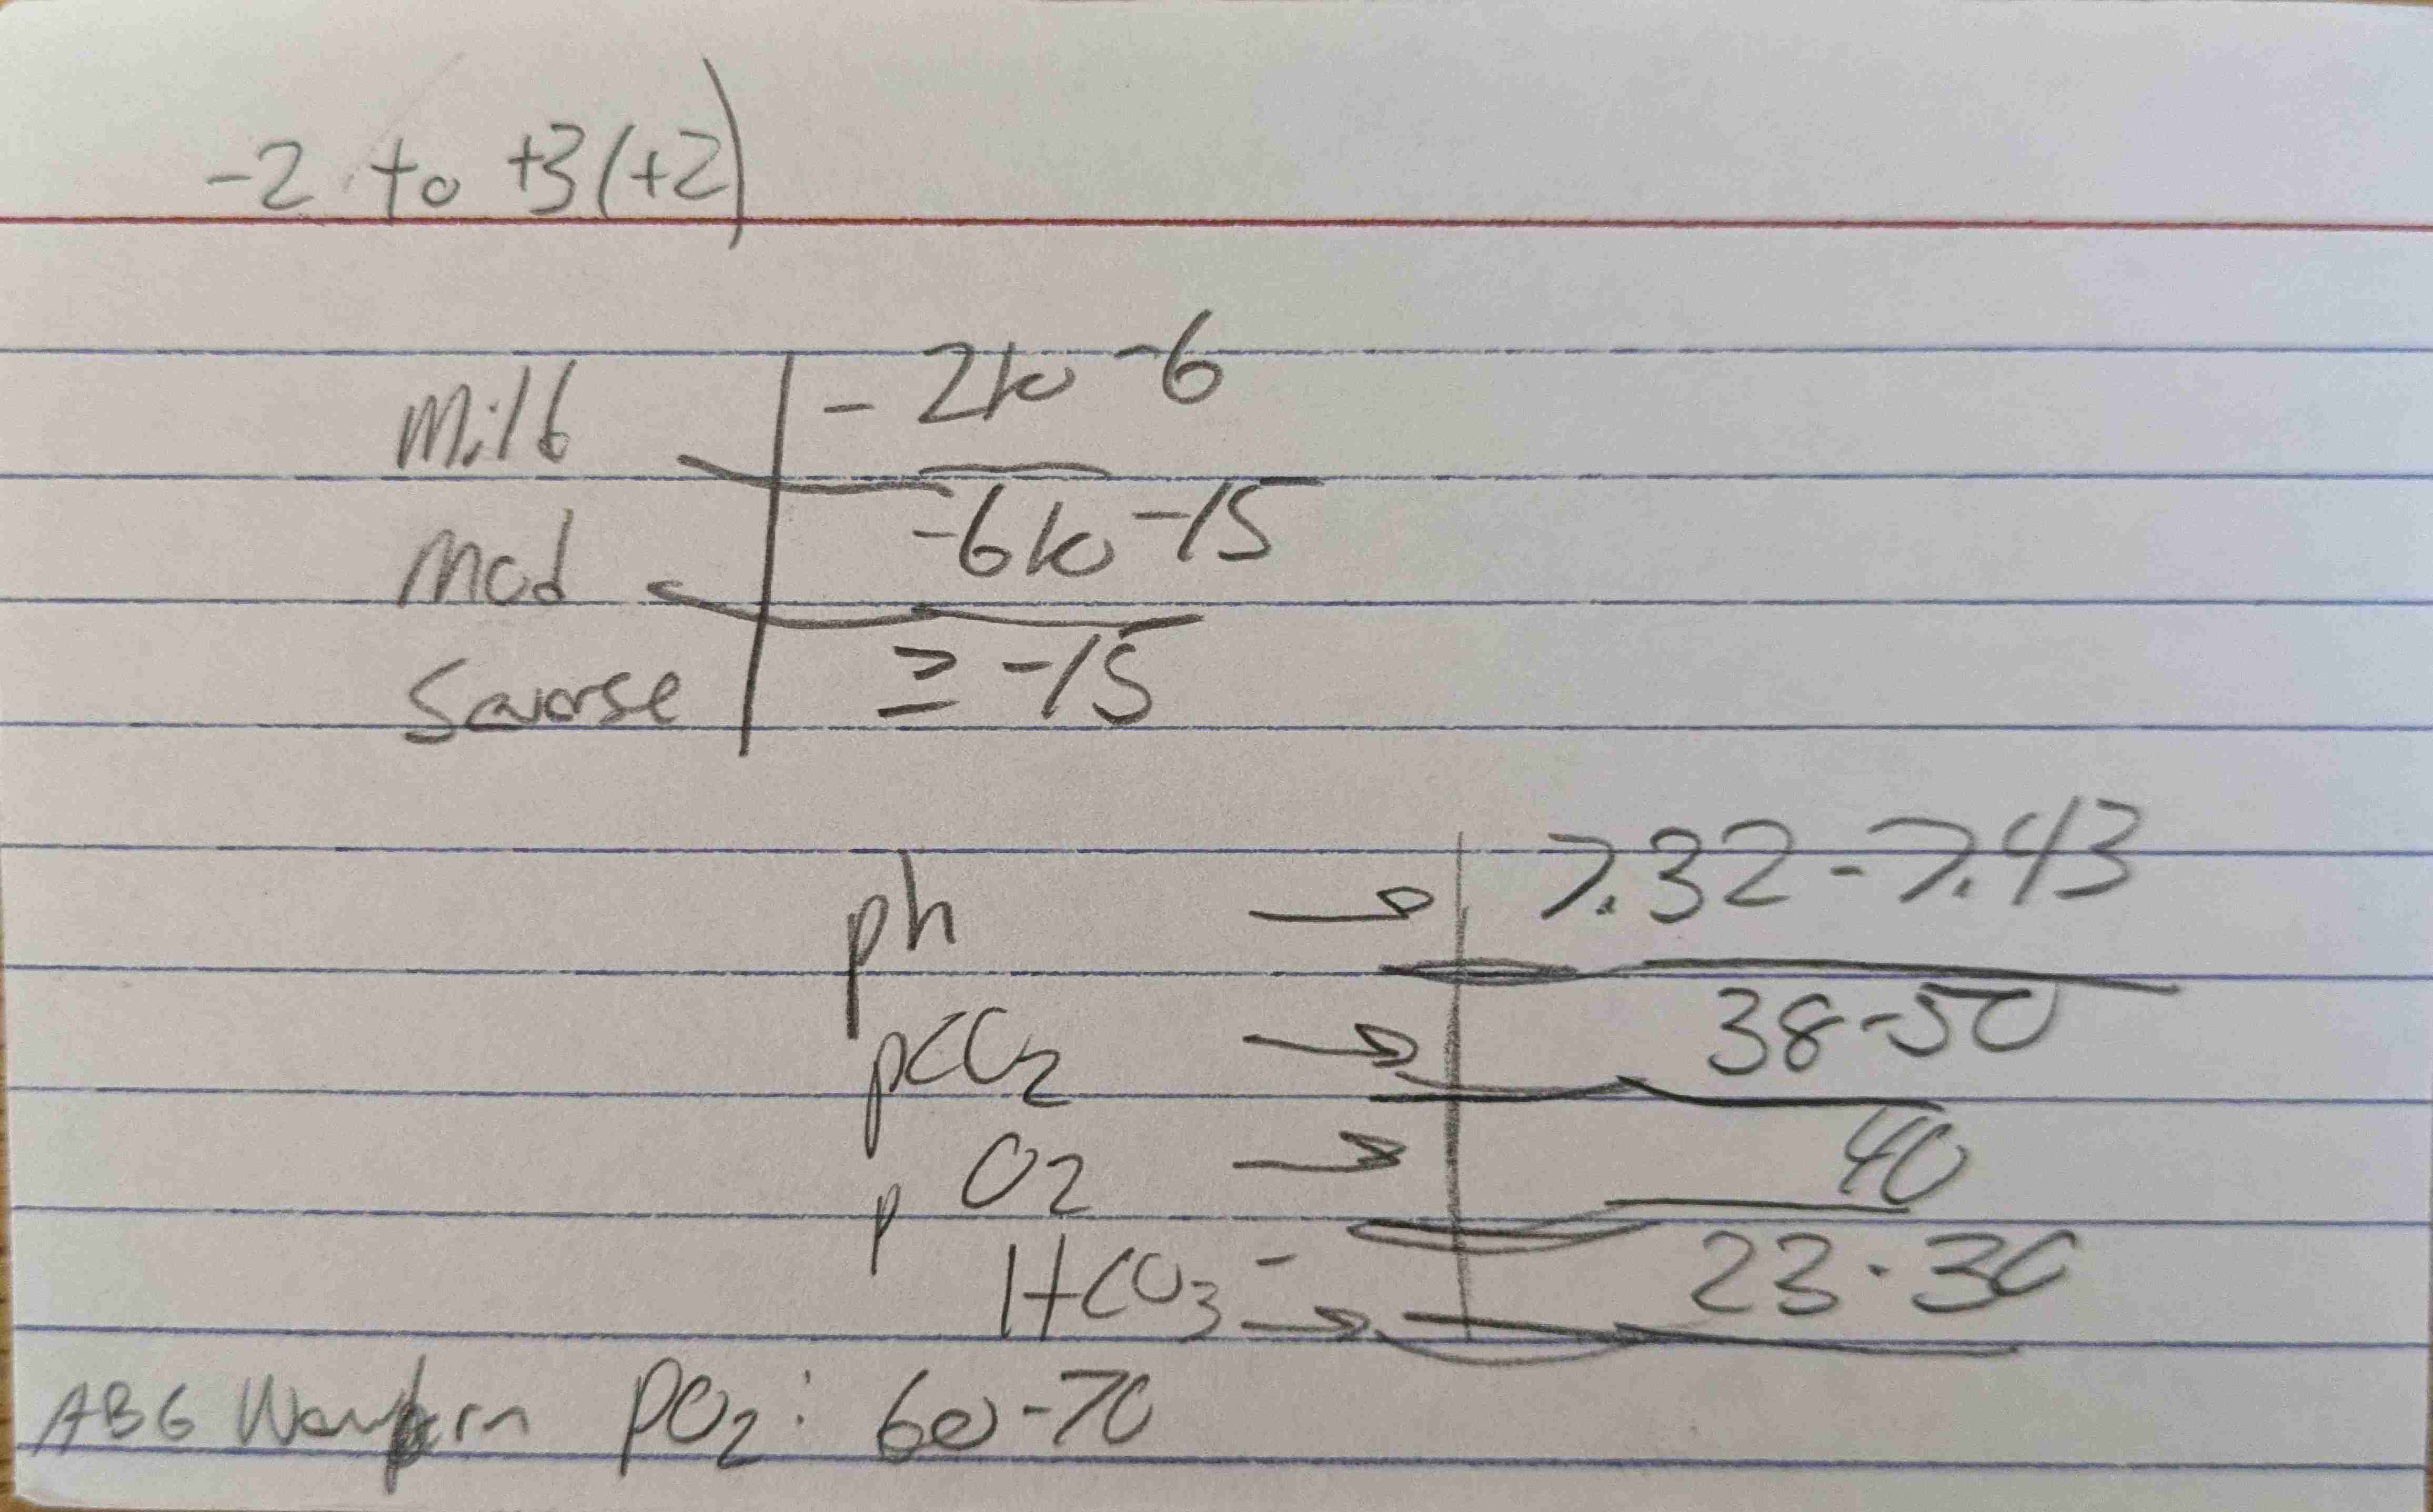 -2 to +3(+2)
Mild -2to -6
Mod -6to -15
Severse ≥ -15
ph → 7.32-7.43
pCO2 → 38-50
pO2 → 40
HCO3- → 23-30
ABG pO2: 60-70